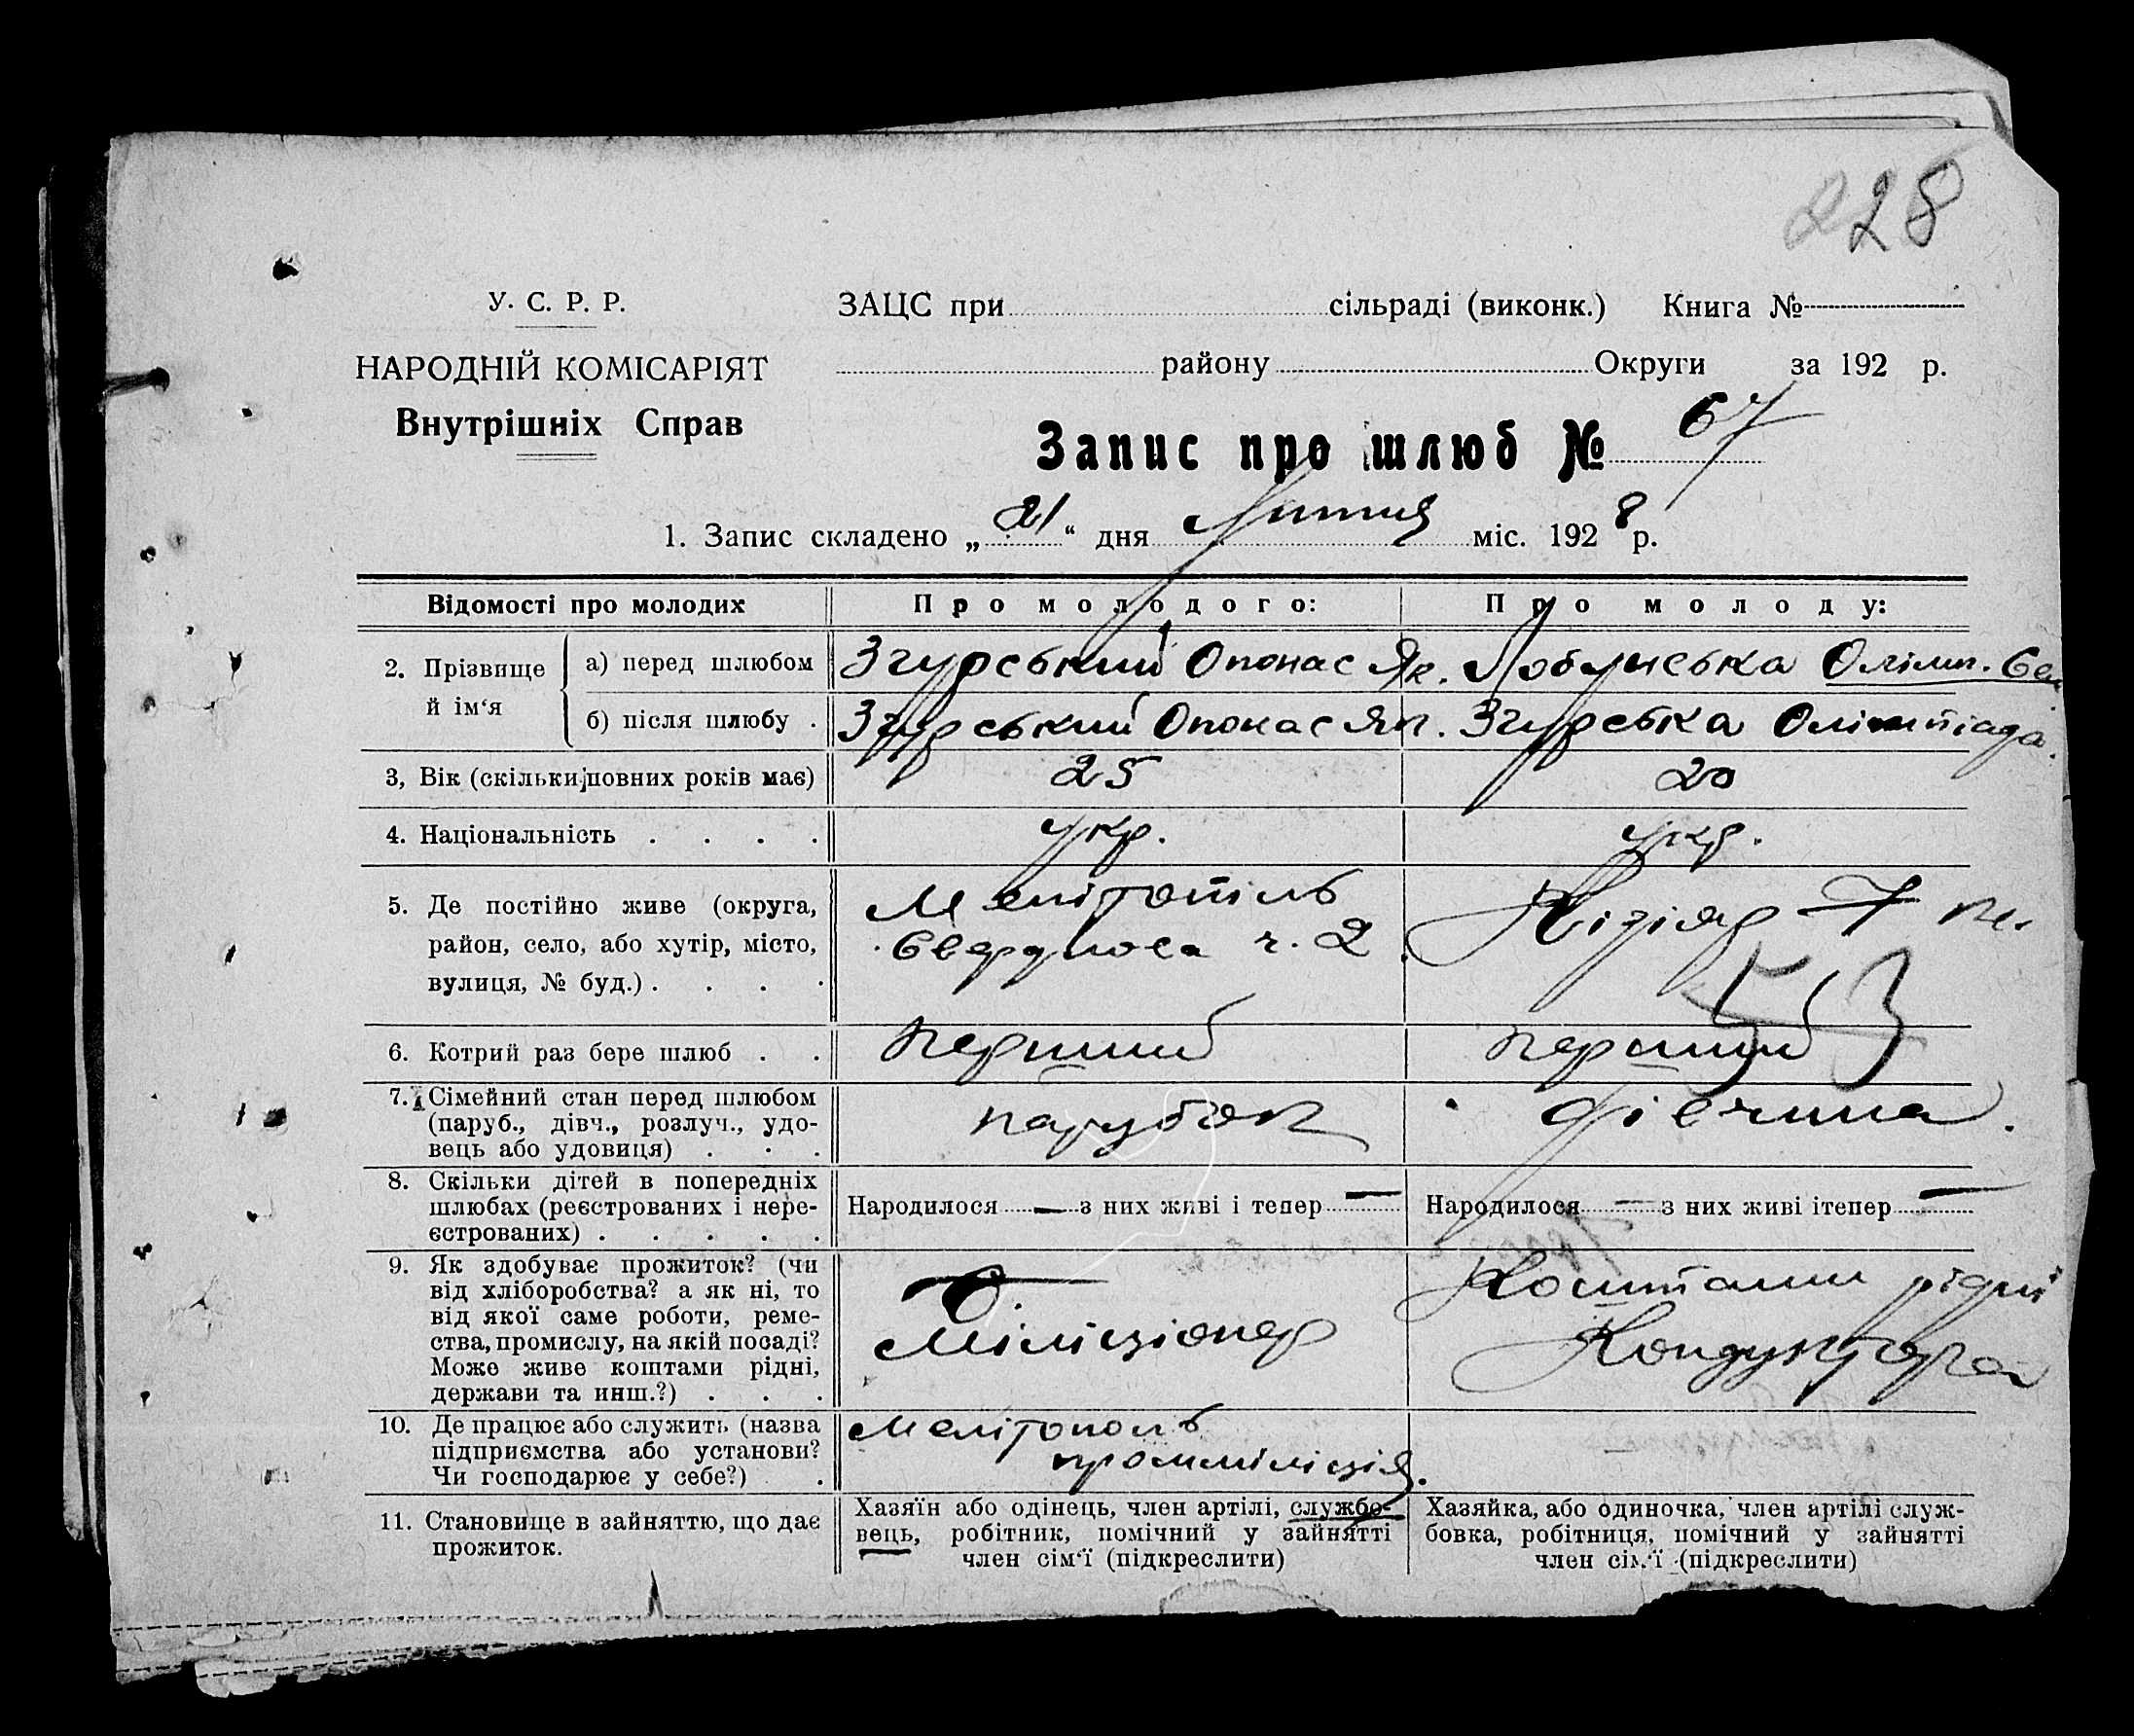 228
У. С. Р. Р.
НАРОДНІЙ КОМІСАРІЯТ
Внутрішніх Справ
ЗАЦС при сільраді (виконк.) Книга №
району Округи за 192 р.
Запис про шлюб № 67
1. Запис складено „21“ дня Липня міс. 1928 р.
Відомості про молодих
Про молодого:
Про молоду:
2. Прізвище й ім‘я
а) перед шлюбом
Згурський Опонас Як.
Олімп.
б) після шлюбу .
Згурський Опонас Як.
Згурська Олімпіада.
3, Вік (скільки повних років має)
25
20
4. Національність . . . .
укр.
укр.
5. Де постійно живе (округа,
район, село, або хутір, місто,
вулиця, № буд.) . . . .
Мелітопіль
Свердлова ч. 2.
Кізіяр 7
53
6. Котрий раз бере шлюб . .
перший
перший
7. Сімейний стан перед шлюбом
(паруб., дівч., розлуч., удо-
вець або удовиця) . . .
парубок
дівчина.
8. Скільки дітей в попередніх
шлюбах (реєстрованих і нере-
єстрованих) . . . . .
Народилося — з них живі і тепер —
Народилося — з них живі ітепер —
9. Як здобуває прожиток? (чи
від хліборобства? а як ні, то
від якої саме роботи, реме-
ства, промислу, на якій посаді?
Може живе коштами рідні,
держави та инш.?) . . .
Міліціонер
Коштами рідні
Кондуктора
10. Де працює або служить (назва
підприємства або установи?
Чи господарює у себе?) .
Мелітополь
проммліція.
11. Становище в зайняттю, що дає
прожиток.
Хазяїн або одінець, член артілі, службо-
вець, робітник, помічний у зайнятті
член сім‘ї (підкреслити)
Хазяйка, або одиночка, член артілі служ-
бовка, робітниця, помічний у зайнятті
член сім‘ї (підкреслити)